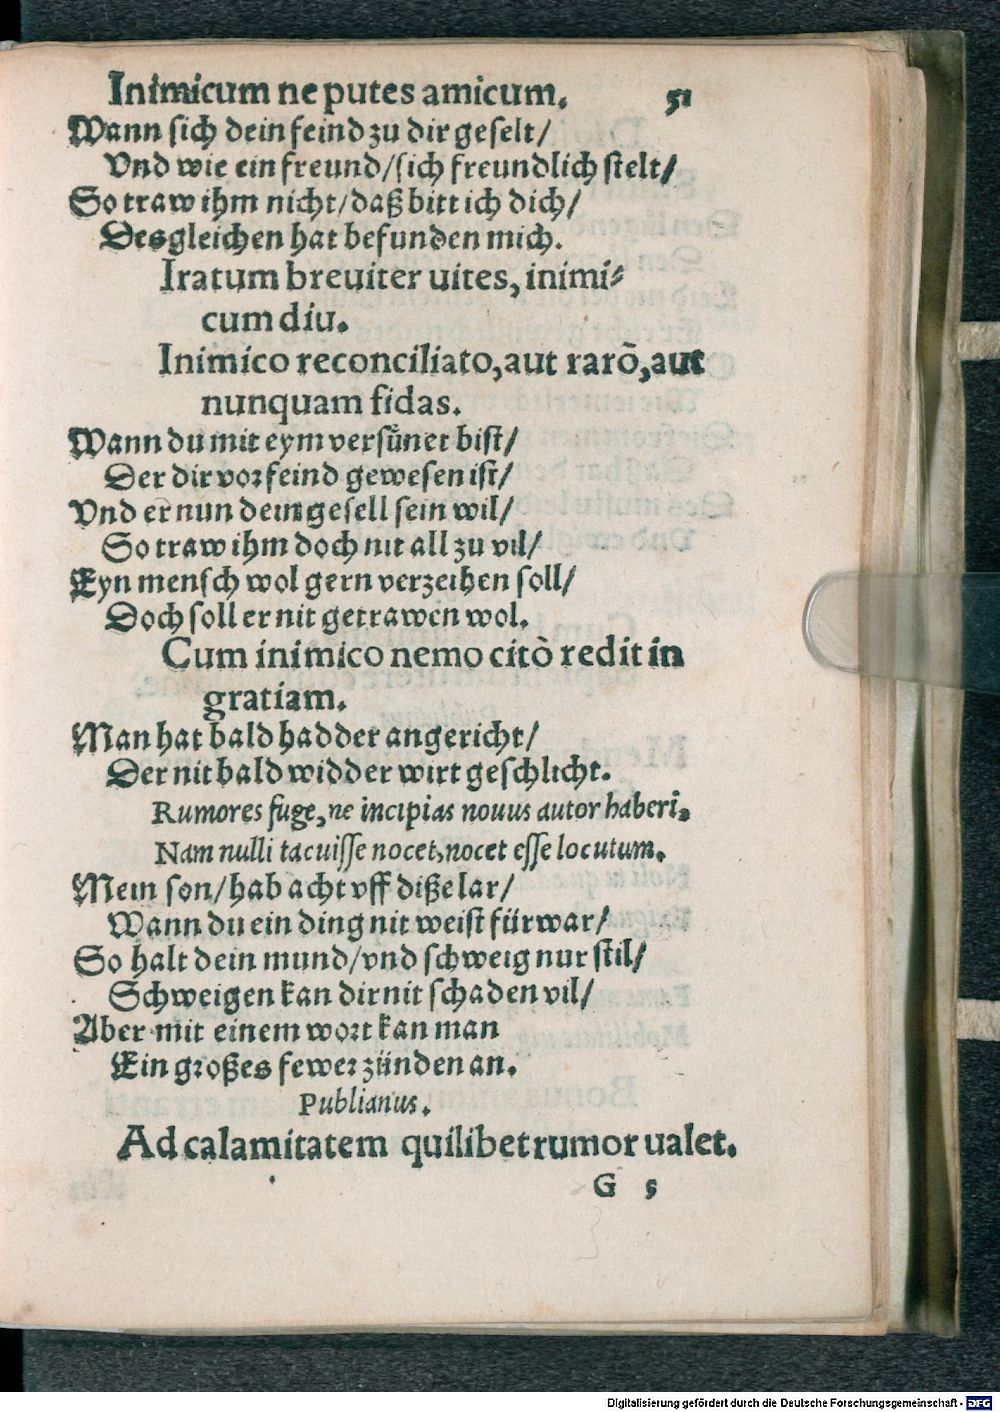 Inimicum ne putes amicum. 51
Wann sich dein feind zu dir geselt/
Vnd wie ein freund/sich freundlich stelt/
So traw ihm nicht/daß bitt ich dich/
Desgleichen hat befunden mich.
Iratum breuiter uites, inimi⸗
cum diu.
Inimico reconciliato, aut rarō, aut
nunquam fidas.
Wann du mit eym versünet bist/
Der dir vor feind gewesen ist/
Vnd er nun dein gesell sein wil/
So traw ihm doch nit all zu vil/
Eyn mensch wol gern verzeihen soll/
Doch soll er nit getrawen wol.
Cum inimico nemo citò redit in
gratiam.
Man hat bald hadder angericht/
Der nit bald widder wirt geschlicht.
Rumores fuge, ne incipias nouus autor haberi.
Nam nulli tacuisse nocet, nocet esse locutum.
Mein son/hab acht vff diße lar/
Wann du ein ding nit weist fürwar/
So halt dein mund/vnd schweig nur stil/
Schweigen kan dir nit schaden vil/
Aber mit einem wort kan man
Ein großes fewer zünden an.
Publianus.
Ad calamitatem quilibet rumor ualet.
G 5
Digitalisierung gefördert durch die Deutsche Forschungsgemeinschaft - DFG